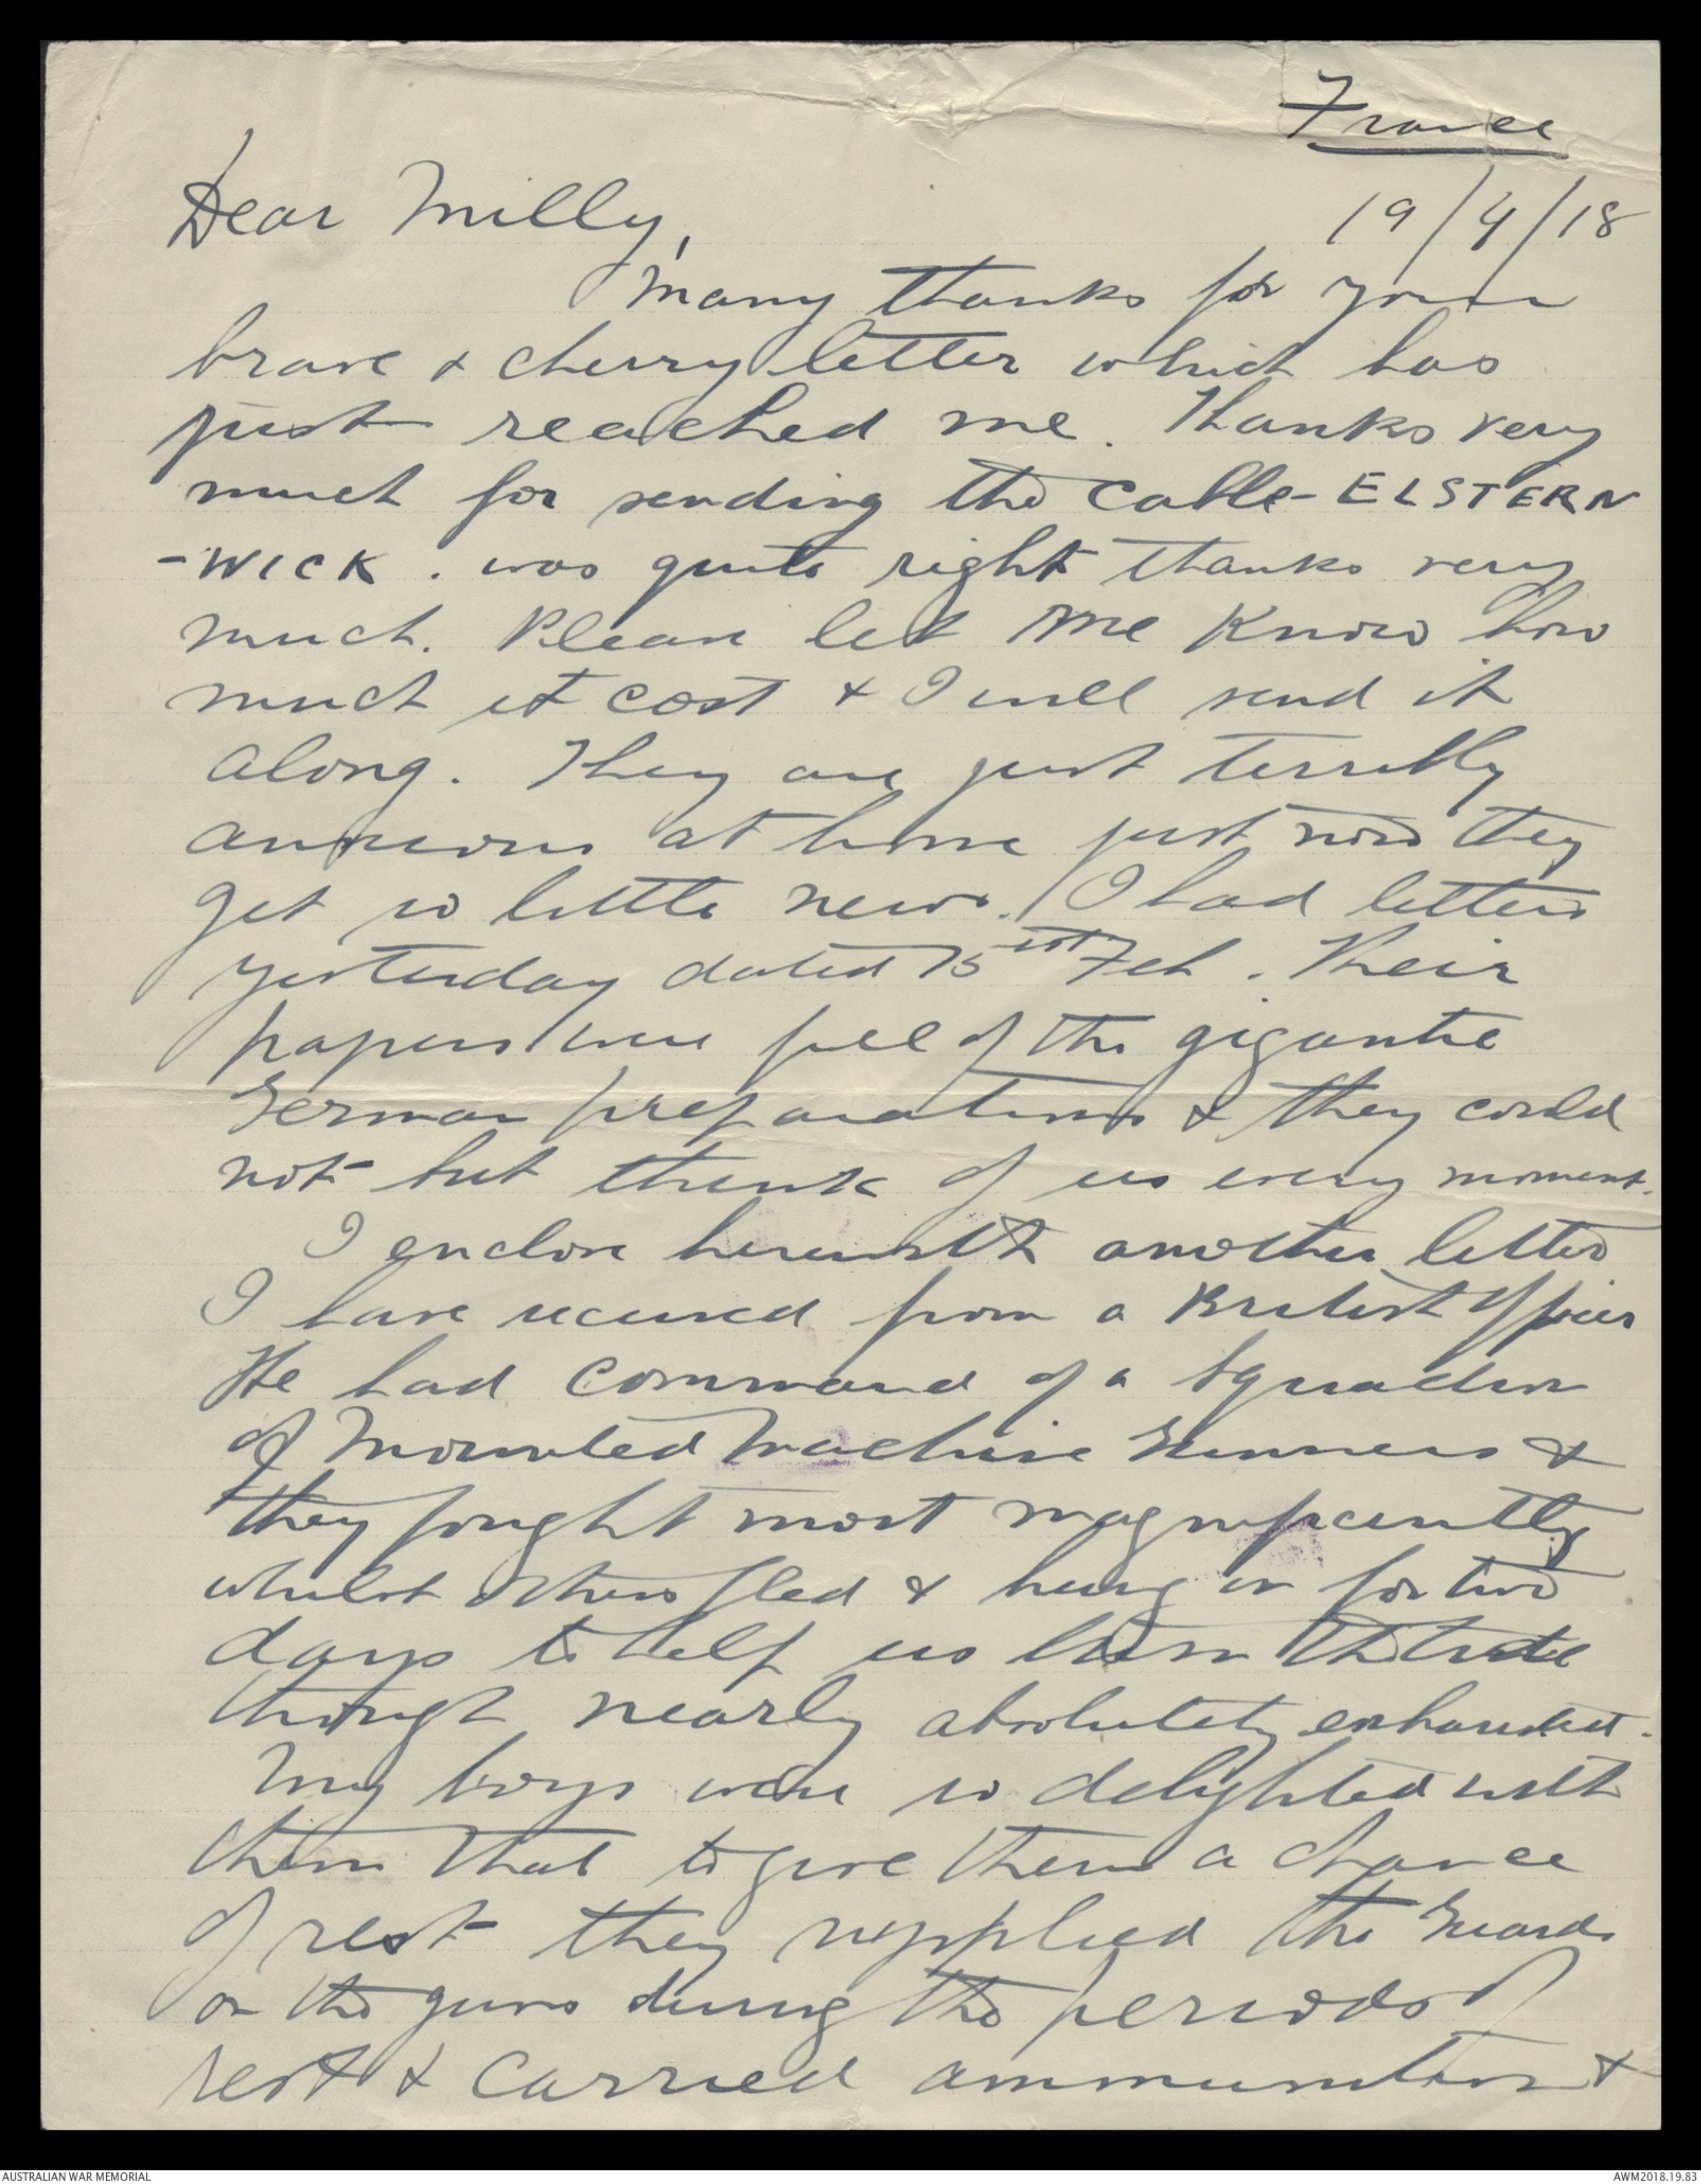 France
19/4/18
Dear Milly,
Many thanks for your
brave & cherry letter which has
just reached me. Thanks very
much for sending the cable - ELSTERN
-WICK. was quite right thanks very
much. Please let me know how
much it cost & I will send it
along. They are just terribly
anxious at home just now they
get so little news. I had letters
yesterday dated 15th Feb. Their
papers were full of the gigantic
German preparations & they could
not but think of us every moment.
I enclose herewith another letter
I have received from a British Officer
He had command of a Squadron
of Mounted Machine Gunners &
they fought most magnificently
whilst others fled & hung on for two
days to help us the tide
though nearly absolutely exhausted.
My boys were so delighted with
them that to give them a chance
of rest they supplied the Guards
on the guns during the periods of
rest & carried ammunition &
AUSTRALIAN WAR MEMORIAL
AWM2018.19.83